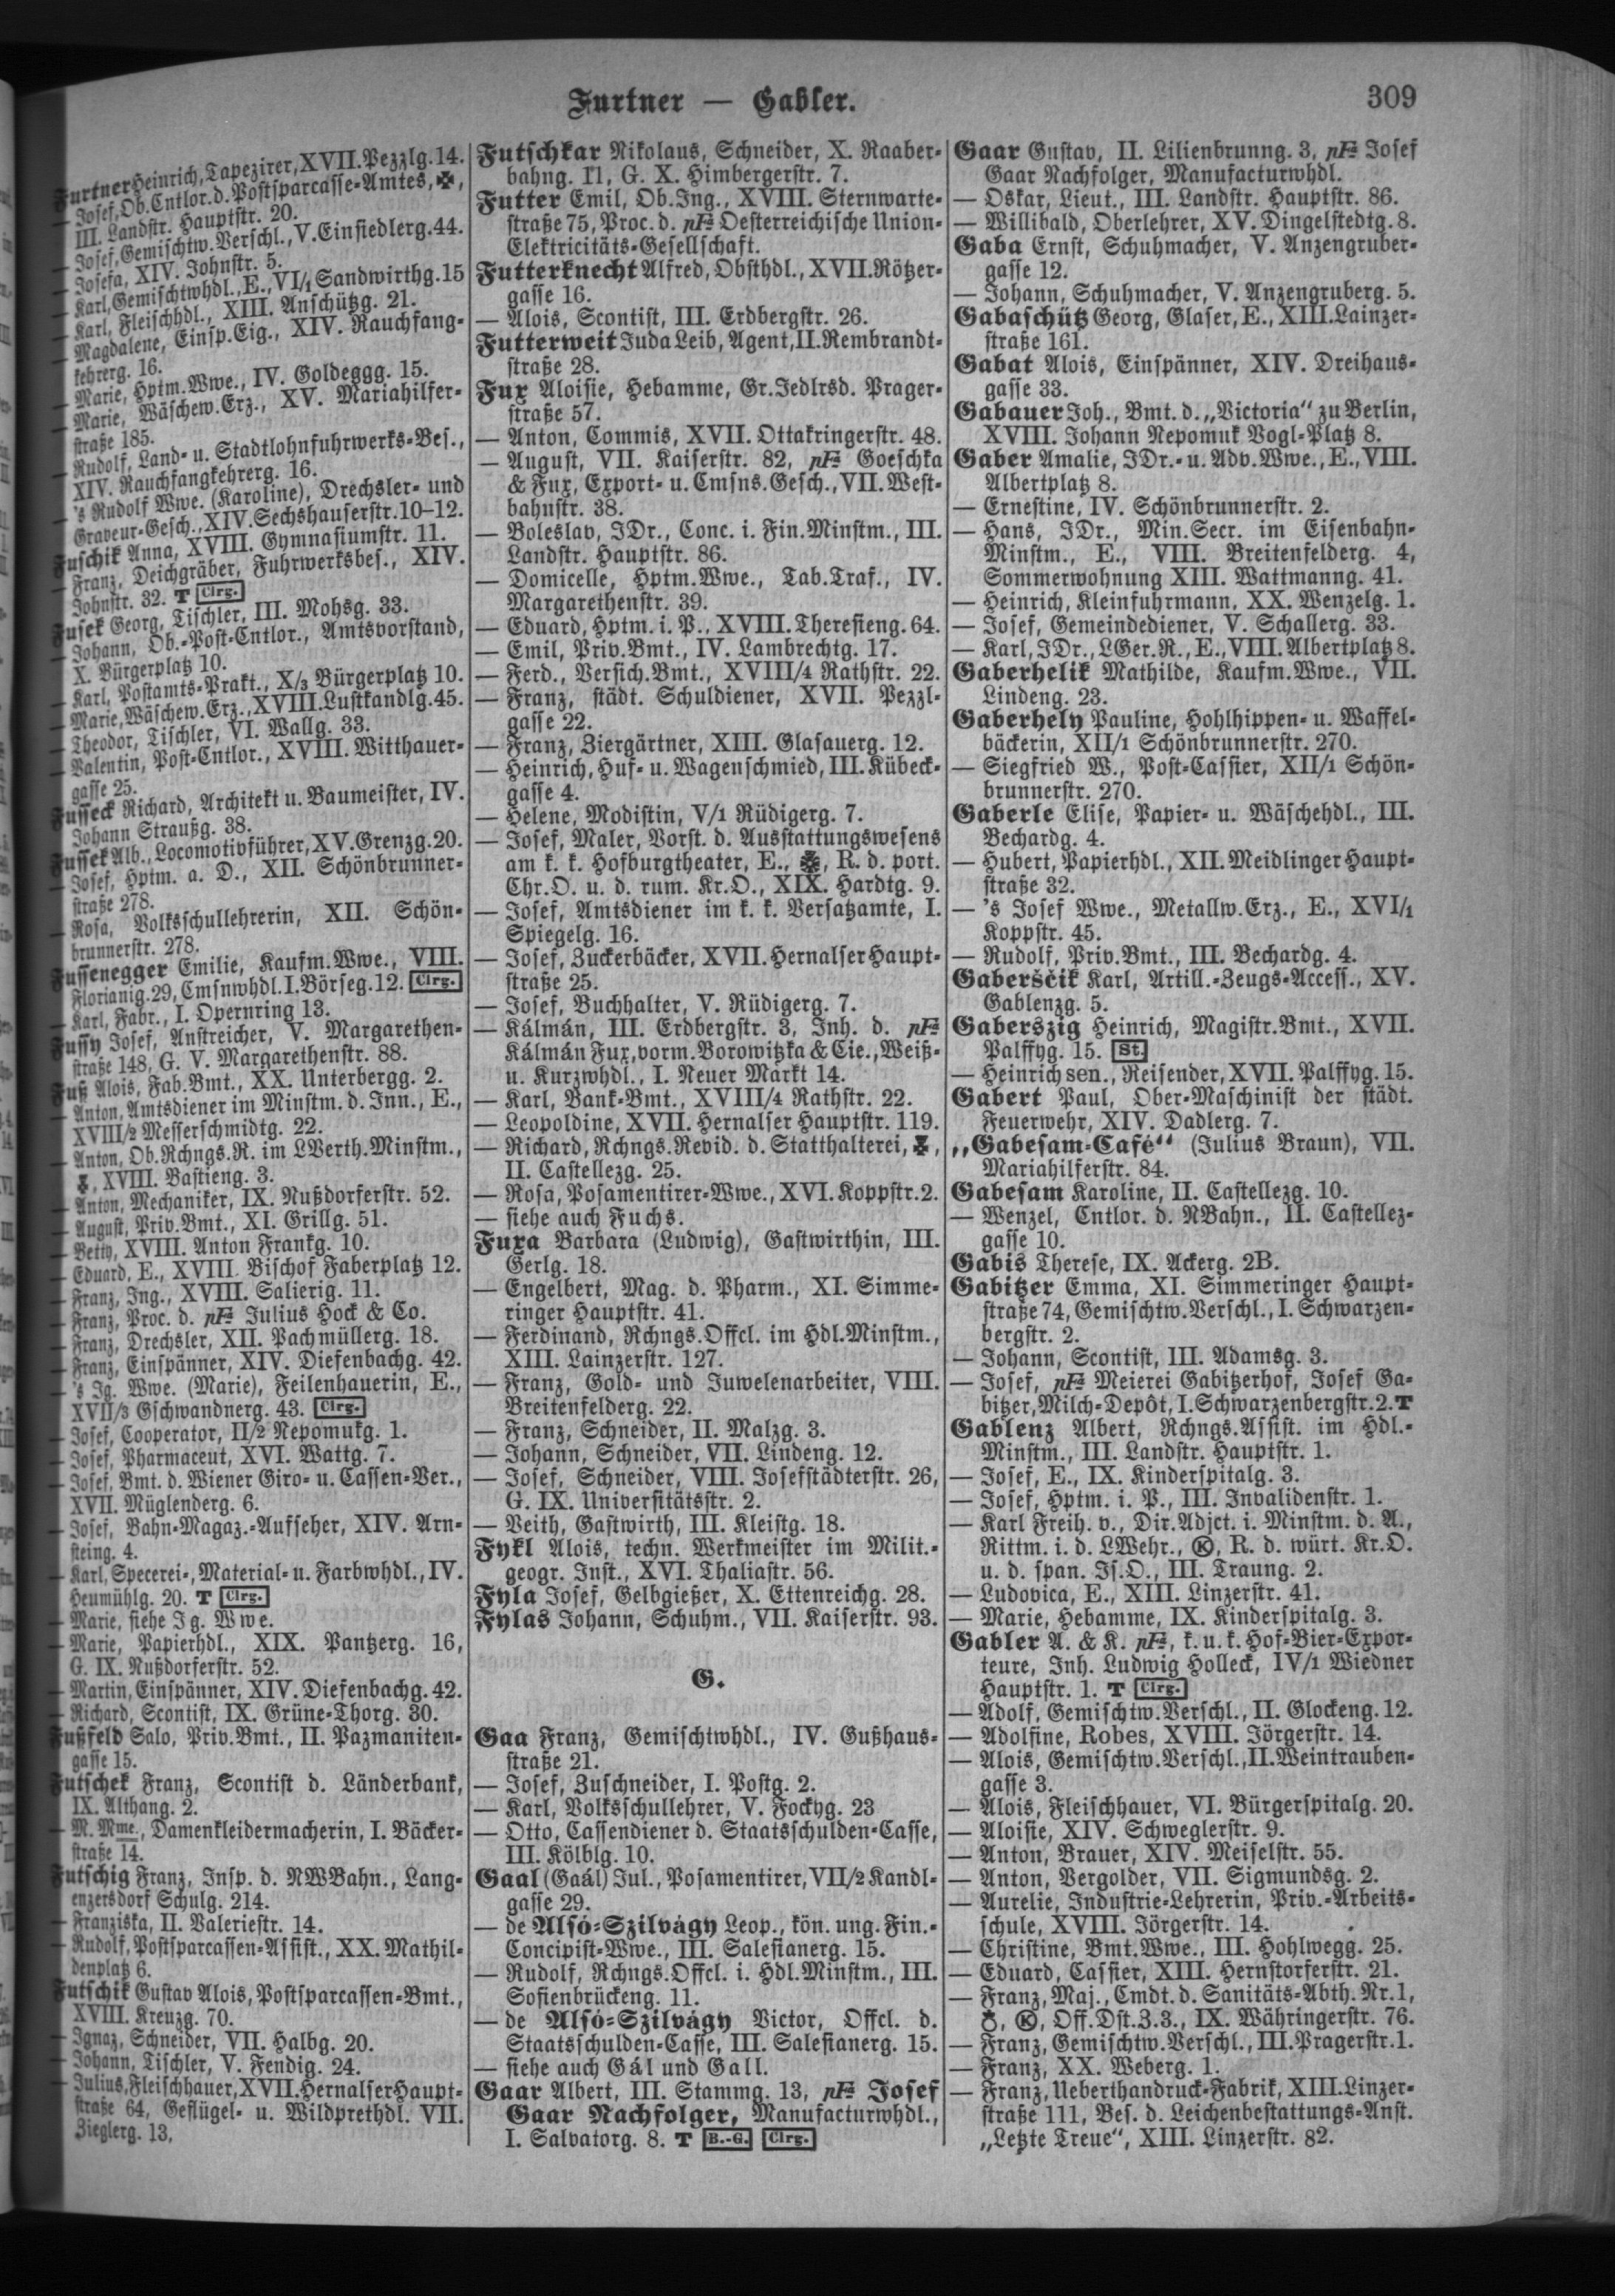 Furtner — Gabler.
309
Furtner Heinrich, Tapezirer, XVII. Pezzlg. 14.
— Josef, Ob. Cntlor. d. Postsparcasse-Amtes,
III. Landstr. Hauptstr. 20.
— Josef, Gemischtw. Verschl., V. Einsiedlerg. 44.
— Josefa, XIV. Johnstr. 5.
— Karl, Gemischtwhdl., E., VI/1 Sandwirthg. 15
— Karl, Fleischhdl., XIII. Anschützg. 21.
— Magdalene, Einsp. Eig., XIV. Rauchfang-
kehrerg. 16.
— Marie, Hptm. Wwe., IV. Goldeggg. 15.
— Marie, Wäschew. Erz., XV. Mariahilfer-
straße 185.
— Rudolf, Land- u. Stadtlohnfuhrwerks-Bes.,
XIV. Rauchfangkehrerg. 16.
— 's Rudolf Wwe. (Karoline), Drechsler- und
Graveur-Gesch., XIV. Sechshauserstr. 10–12.
Fuschik Anna, XVIII. Gymnasiumstr. 11.
— Franz, Deichgräber, Fuhrwerksbes., XIV.
Johnstr. 32. T Clrg.
Fusek Georg, Tischler, III. Mohsg. 33.
— Johann, Ob.-Post-Cntlor., Amtsvorstand,
X. Bürgerplatz 10.
— Karl, Postamts-Prakt., X/3 Bürgerplatz 10.
— Marie, Wäschew. Erz., XVIII. Lustkandlg. 45.
— Theodor, Tischler, VI. Wallg. 33.
— Valentin, Post-Cntlor., XVIII. Witthauer-
gasse 25.
Fusseck Richard, Architekt u. Baumeister, IV.
Johann Straußg. 38.
Fussek Alb., Locomotivführer, XV. Grenzg. 20.
— Josef, Hptm. a. D., XII. Schönbrunner-
straße 278.
— Rosa, Volksschullehrerin, XII. Schön-
brunnerstr. 278.
Fussenegger Emilie, Kaufm. Wwe., VIII.
Florianig. 29, Cmsnwhdl. I. Börseg. 12. Clrg.
— Karl, Fabr., I. Opernring 13.
Fussy Josef, Anstreicher, V. Margarethen-
straße 148, G. V. Margarethenstr. 88.
Fuß Alois, Fab. Bmt., XX. Unterbergg. 2.
— Anton, Amtsdiener im Minstm. d. Inn., E.,
XVIII/2 Messerschmidtg. 22.
— Anton, Ob. Rchngs. R. im LVerth. Minstm.,
XVIII. Bastieng. 3.
— Anton, Mechaniker, IX. Nußdorferstr. 52.
— August, Priv. Bmt., XI. Grillg. 51.
— Betty, XVIII. Anton Frankg. 10.
— Eduard, E., XVIII. Bischof Faberplatz 12.
— Franz, Ing., XVIII. Salierig. 11.
— Franz, Proc. d. pFa Julius Hock & Co.
— Franz, Drechsler, XII. Pachmüllerg. 18.
— Franz, Einspänner, XIV. Diefenbachg. 42.
— 's Ig. Wwe. (Marie), Feilenhauerin, E.,
XVII/3 Gschwandnerg. 43. Clrg.
— Josef, Cooperator, II/2 Nepomukg. 1.
— Josef, Pharmaceut, XVI. Wattg. 7.
— Josef, Bmt. d. Wiener Giro- u. Cassen-Ver.,
XVII. Müglenderg. 6.
— Josef, Bahn-Magaz.-Aufseher, XIV. Arn-
steing. 4.
— Karl, Specerei-, Material- u. Farbwhdl., IV.
Heumühlg. 20. T Clrg.
— Marie, siehe Ig. Wwe.
— Marie, Papierhdl., XIX. Pantzerg. 16,
G. IX. Nußdorferstr. 52.
— Martin, Einspänner, XIV. Diefenbachg. 42.
— Richard, Scontist, IX. Grüne-Thorg. 30.
Fußfeld Salo, Priv. Bmt., II. Pazmaniten-
gasse 15.
Futschek Franz, Scontist d. Länderbank,
IX. Althang. 2.
— M. Mme., Damenkleidermacherin, I. Bäcker-
straße 14.
Futschig Franz, Insp. d. NWBahn., Lang-
enzersdorf Schulg. 214.
— Franziska, II. Valeriestr. 14.
— Rudolf, Postsparcassen-Assist., XX. Mathil-
denplatz 6.
Futschik Gustav Alois, Postsparcassen-Bmt.,
XVIII. Kreuzg. 70.
— Ignaz, Schneider, VII. Halbg. 20.
— Johann, Tischler, V. Fendig. 24.
— Julius, Fleischhauer, XVII. Hernalser Haupt-
straße 64, Geflügel- u. Wildprethdl. VII.
Zieglerg. 13,
Futschkar Nikolaus, Schneider, X. Raaber-
bahng. 11, G. X. Himbergerstr. 7.
Futter Emil, Ob. Ing., XVIII. Sternwarte-
straße 75, Proc. d. pFa Oesterreichische Union-
Elektricitäts-Gesellschaft.
Futterknecht Alfred, Obsthdl., XVII. Rötzer-
gasse 16.
— Alois, Scontist, III. Erdbergstr. 26.
Futterweit Juda Leib, Agent, II. Rembrandt-
straße 28.
Fux Aloisie, Hebamme, Gr. Jedlrsd. Prager-
straße 57.
— Anton, Commis, XVII. Ottakringerstr. 48.
— August, VII. Kaiserstr. 82, pFa Goeschka
& Fux, Export- u. Cmsns. Gesch., VII. West-
bahnstr. 38.
— Boleslav, JDr., Conc. i. Fin. Minstm., III.
Landstr. Hauptstr. 86.
— Domicelle, Hptm. Wwe., Tab. Traf., IV.
Margarethenstr. 39.
— Eduard, Hptm. i. P., XVIII. Theresieng. 64.
— Emil, Priv. Bmt., IV. Lambrechtg. 17.
— Ferd., Versich. Bmt., XVIII/4 Rathstr. 22.
— Franz, städt. Schuldiener, XVII. Pezzl-
gasse 22.
— Franz, Ziergärtner, XIII. Glasauerg. 12.
— Heinrich, Huf- u. Wagenschmied, III. Kübeck-
gasse 4.
— Helene, Modistin, V/1 Rüdigerg. 7.
— Josef, Maler, Vorst. d. Ausstattungswesens
am k. k. Hofburgtheater, E., R. d. port.
Chr. O. u. d. rum. Kr. O., XIX. Hardtg. 9.
— Josef, Amtsdiener im k. k. Versatzamte, I.
Spiegelg. 16.
— Josef, Zuckerbäcker, XVII. Hernalser Haupt-
straße 25.
— Josef, Buchhalter, V. Rüdigerg. 7.
— Kálmán, III. Erdbergstr. 3, Inh. d. pFa
Kálmán Fux, vorm. Borowitzka & Cie., Weiß-
u. Kurzwhdl., I. Neuer Markt 14.
— Karl, Bank-Bmt., XVIII/4 Rathstr. 22.
— Leopoldine, XVII. Hernalser Hauptstr. 119.
— Richard, Rchngs. Revid. d. Statthalterei,
II. Castellezg. 25.
— Rosa, Posamentirer-Wwe., XVI. Koppstr. 2.
— siehe auch Fuchs.
Fuxa Barbara (Ludwig), Gastwirthin, III.
Gerlg. 18.
— Engelbert, Mag. d. Pharm., XI. Simme-
ringer Hauptstr. 41.
— Ferdinand, Rchngs. Offcl. im Hdl. Minstm.,
XIII. Lainzerstr. 127.
— Franz, Gold- und Juwelenarbeiter, VIII.
Breitenfelderg. 22.
— Franz, Schneider, II. Malzg. 3.
— Johann, Schneider, VII. Lindeng. 12.
— Josef, Schneider, VIII. Josefstädterstr. 26,
G. IX. Universitätsstr. 2.
— Veith, Gastwirth, III. Kleistg. 18.
Fykl Alois, techn. Werkmeister im Milit.-
geogr. Inst., XVI. Thaliastr. 56.
Fyla Josef, Gelbgießer, X. Ettenreichg. 28.
Fylas Johann, Schuhm., VII. Kaiserstr. 93.
G.
Gaa Franz, Gemischtwhdl., IV. Gußhaus-
straße 21.
— Josef, Zuschneider, I. Postg. 2.
— Karl, Volksschullehrer, V. Fockyg. 23
— Otto, Cassendiener d. Staatsschulden-Casse,
III. Kölblg. 10.
Gaal (Gaál) Jul., Posamentirer, VII/2 Kandl-
gasse 29.
— de Alsó-Szilvágy Leop., kön. ung. Fin.-
Concipist-Wwe., III. Salesianerg. 15.
— Rudolf, Rchngs. Offcl. i. Hdl. Minstm., III.
Sofienbrückeng. 11.
— de Alsó-Szilvágy Victor, Offcl. d.
Staatsschulden-Casse, III. Salesianerg. 15.
— siehe auch Gál und Gall.
Gaar Albert, III. Stammg. 13, pFa Josef
Gaar Nachfolger, Manufacturwhdl.,
I. Salvatorg. 8. T B.-G. Clrg.
Gaar Gustav, II. Lilienbrunng. 3, pFa Josef
Gaar Nachfolger, Manufacturwhdl.
— Oskar, Lieut., III. Landstr. Hauptstr. 86.
— Willibald, Oberlehrer, XV. Dingelstedtg. 8.
Gaba Ernst, Schuhmacher, V. Anzengruber-
gasse 12.
— Johann, Schuhmacher, V. Anzengruberg. 5.
Gabaschütz Georg, Glaser, E., XIII. Lainzer-
straße 161.
Gabat Alois, Einspänner, XIV. Dreihaus-
gasse 33.
Gabauer Joh., Bmt. d. „Victoria“ zu Berlin,
XVIII. Johann Nepomuk Vogl-Platz 8.
Gaber Amalie, JDr.- u. Adv. Wwe., E., VIII.
Albertplatz 8.
— Ernestine, IV. Schönbrunnerstr. 2.
— Hans, JDr., Min. Secr. im Eisenbahn-
Minstm., E., VIII. Breitenfelderg. 4,
Sommerwohnung XIII. Wattmanng. 41.
— Heinrich, Kleinfuhrmann, XX. Wenzelg. 1.
— Josef, Gemeindediener, V. Schallerg. 33.
— Karl, JDr., LGer. R., E., VIII. Albertplatz 8.
Gaberhelik Mathilde, Kaufm. Wwe., VII.
Lindeng. 23.
Gaberhely Pauline, Hohlhippen- u. Waffel-
bäckerin, XII/1 Schönbrunnerstr. 270.
— Siegfried W., Post-Cassier, XII/1 Schön-
brunnerstr. 270.
Gaberle Elise, Papier- u. Wäschehdl., III.
Bechardg. 4.
— Hubert, Papierhdl., XII. Meidlinger Haupt-
straße 32.
— 's Josef Wwe., Metallw. Erz., E., XVI/1
Koppstr. 45.
— Rudolf, Priv. Bmt., III. Bechardg. 4.
Gaberščik Karl, Artill.-Zeugs-Access., XV.
Gablenzg. 5.
Gaberszig Heinrich, Magistr. Bmt., XVII.
Palffyg. 15. St.
— Heinrich sen., Reisender, XVII. Palffyg. 15.
Gabert Paul, Ober-Maschinist der städt.
Feuerwehr, XIV. Dadlerg. 7.
„Gabesam-Café“ (Julius Braun), VII.
Mariahilferstr. 84.
Gabesam Karoline, II. Castellezg. 10.
— Wenzel, Cntlor. d. NBahn., II. Castellez-
gasse 10.
Gabis Therese, IX. Ackerg. 2B.
Gabitzer Emma, XI. Simmeringer Haupt-
straße 74, Gemischtw. Verschl., I. Schwarzen-
bergstr. 2.
— Johann, Scontist, III. Adamsg. 3.
— Josef, pFa Meierei Gabitzerhof, Josef Ga-
bitzer, Milch-Depôt, I. Schwarzenbergstr. 2. T
Gablenz Albert, Rchngs. Assist. im Hdl.-
Minstm., III. Landstr. Hauptstr. 1.
— Josef, E., IX. Kinderspitalg. 3.
— Josef, Hptm. i. P., III. Invalidenstr. 1.
— Karl Freih. v., Dir. Adjct. i. Minstm. d. A.,
Rittm. i. d. LWehr., K, R. d. würt. Kr. O.
u. d. span. Is. O., III. Traung. 2.
— Ludovica, E., XIII. Linzerstr. 41.
— Marie, Hebamme, IX. Kinderspitalg. 3.
Gabler A. & K. pFa, k. u. k. Hof-Bier-Expor-
teure, Inh. Ludwig Holleck, IV/1 Wiedner
Hauptstr. 1. T Clrg.
— Adolf, Gemischtw. Verschl., II. Glockeng. 12.
— Adolfine, Robes, XVIII. Jörgerstr. 14.
— Alois, Gemischtw. Verschl., II. Weintrauben-
gasse 3.
— Alois, Fleischhauer, VI. Bürgerspitalg. 20.
— Aloisie, XIV. Schweglerstr. 9.
— Anton, Brauer, XIV. Meiselstr. 55.
— Anton, Vergolder, VII. Sigmundsg. 2.
— Aurelie, Industrie-Lehrerin, Priv.-Arbeits-
schule, XVIII. Jörgerstr. 14.
— Christine, Bmt. Wwe., III. Hohlwegg. 25.
— Eduard, Cassier, XIII. Hernstorferstr. 21.
— Franz, Maj., Cmdt. d. Sanitäts-Abth. Nr. 1,
K, Off. Dst. Z. 3., IX. Währingerstr. 76.
— Franz, Gemischtw. Verschl., III. Pragerstr. 1.
— Franz, XX. Weberg. 1.
— Franz, Ueberthandruck-Fabrik, XIII. Linzer-
straße 111, Bes. d. Leichenbestattungs-Anst.
„Letzte Treue“, XIII. Linzerstr. 82.